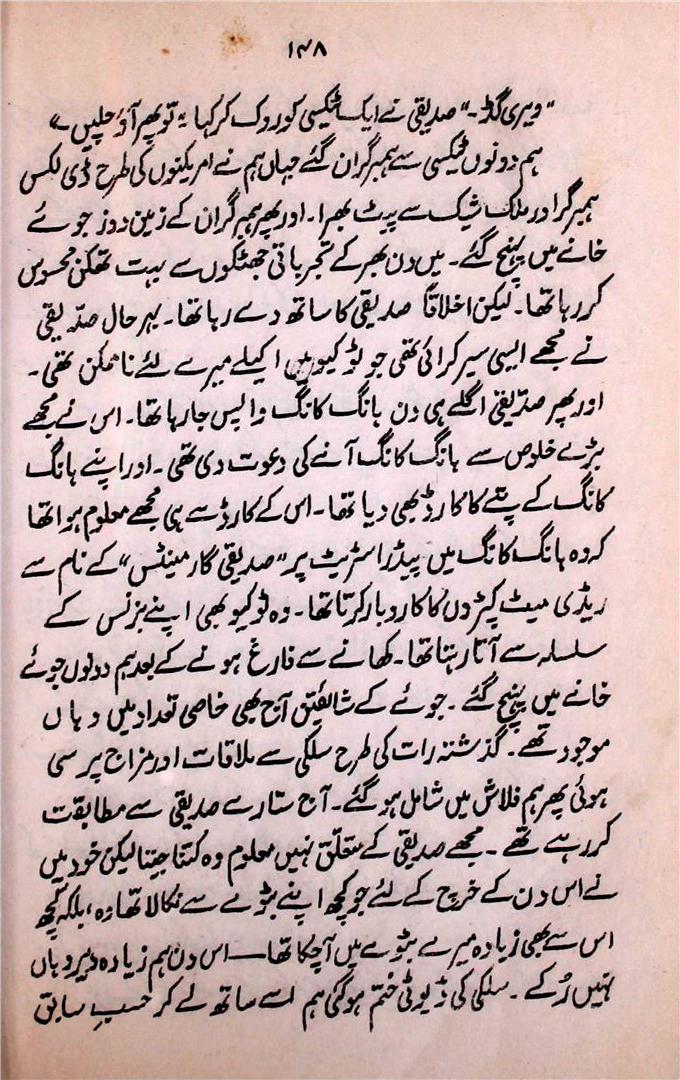 ۱۴۸
"ویری گڈ۔" صدیقی نے ایک ٹیکسی کو روک کر کہا "تو پھر آؤ چلیں۔"
ہم دونوں ٹیکسی سے ہمبرگران گئے جہاں ہم نے امریکنوں کی طرح ڈی لکس
ہمبرگر اور ملک شیک سے پیٹ بھرا۔ اور پھر ہمبرگران کے زمین دوز جوئے
خانے میں پہنچ گئے۔ میں دن بھر کے تجرباتی جھٹکوں سے بہت تھکن محسوس
کر رہا تھا۔ لیکن اخلاقاً صدیقی کا ساتھ دے رہا تھا۔ بہر حال صدیقی
نے مجھے ایسی سیر کرائی تھی جو ٹوکیو میں اکیلے میرے لئے ناممکن تھی۔
اور پھر صدیقی اگلے ہی دن ہانگ کانگ واپس جا رہا تھا۔ اس نے مجھے
بڑے خلوص سے ہانگ کانگ آنے کی دعوت دی تھی۔ اور اپنے ہانگ
کانگ کے پتے کا کارڈ بھی دیا تھا۔ اس کے کارڈ سے ہی مجھے معلوم ہوا تھا
کہ وہ ہانگ کانگ میں پیڈر اسٹریٹ پر "صدیقی گارمینٹس" کے نام سے
ریڈی میٹ کپڑوں کا کاروبار کرتا تھا۔ وہ ٹوکیو بھی اپنے بزنس کے
سلسلہ سے آتا رہتا تھا۔ کھانے سے فارغ ہونے کے بعد ہم دونوں جوئے
خانے میں پہنچ گئے۔ جوئے کے شائقین آج بھی خاصی تعداد میں وہاں
موجود تھے۔ گذشتہ رات کی طرح سلکی سے ملاقات اور مزاج پرسی
ہوئی پھر ہم فلاش میں شامل ہو گئے۔ آج ستارے صدیقی سے مطابقت
کر رہے تھے۔ مجھے صدیقی کے متعلق نہیں معلوم وہ کتنا جیتا لیکن خود میں
نے اس دن کے خرچ کے لئے جو کچھ اپنے بٹوے سے نکالا تھا وہ، بلکہ کچھ
اس سے بھی زیادہ میرے بٹوے میں آچکا تھا — اس دن ہم زیادہ دیر وہاں
نہیں رُکے۔ سلکی کی ڈیوٹی ختم ہو گئی ہم اسے ساتھ لے کر حسبِ سابق